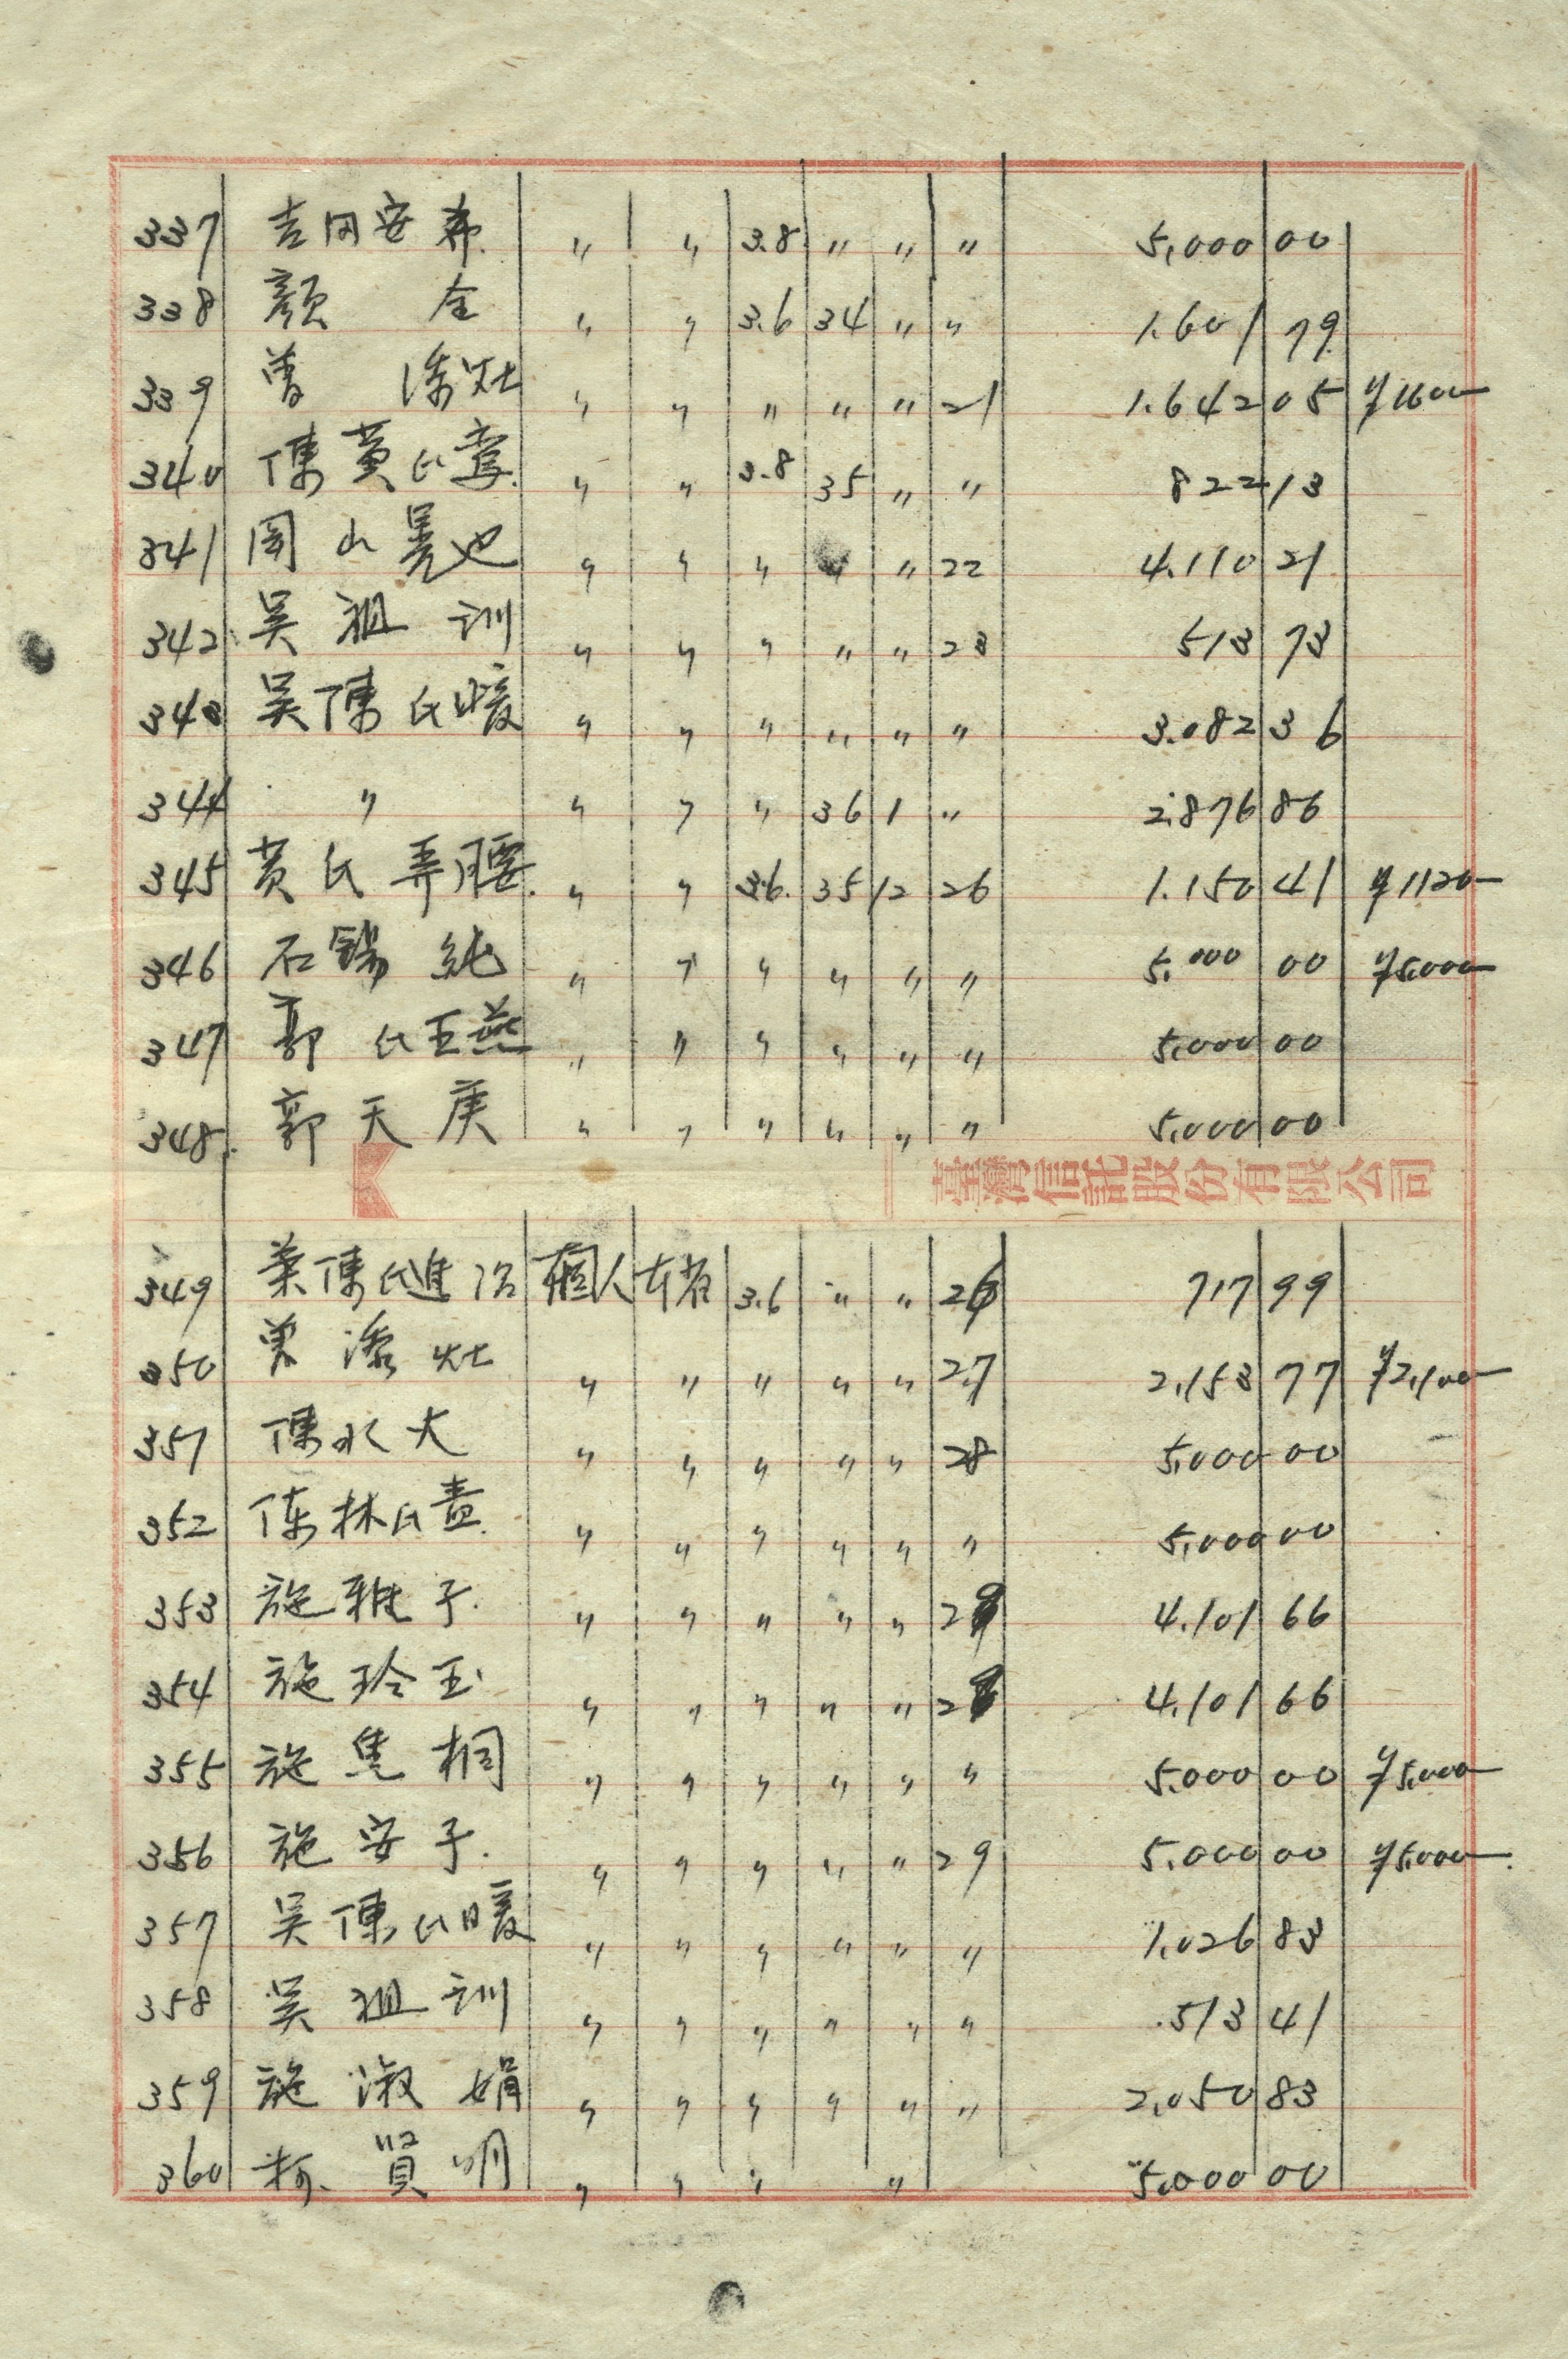 337 吉岡安希 〃 〃 3.8 〃 〃 〃 5,000 00
338 顏 全 〃 〃 3.6 34 〃 〃 1.601 79
339 曾 添灶 〃 〃 〃 〃 〃 21 1.642 05 ¥1600
340 陳黃氏鶯 〃 〃 3.8 35 〃 〃 822 13
341 岡山晃也 〃 〃 〃 〃 〃 22 4.110 21
342 吳祖訓 〃 〃 〃 〃 〃 23 513 73
343 吳陳氏暖 〃 〃 〃 〃 〃 〃 3.082 36
344 〃 〃 〃 〃 36 1 〃 2.876 86
345 黃氏弄腰 〃 〃 3.6 35 12 26 1.150 41 ¥1120
346 石錫純 〃 〃 〃 〃 〃 〃 5.000 00 ¥5,000
347 郭氏玉燕 〃 〃 〃 〃 〃 〃 5,000 00
348 郭天庚 〃 〃 〃 〃 〃 〃 5,000 00
臺灣信託股份有限公司
349 葉陳氏進治 個人 本省 3.6 〃 〃 26 717 99
350 曾添灶 〃 〃 〃 〃 〃 27 2,153 77 ¥2,100
351 陳水大 〃 〃 〃 〃 〃 28 5,000 00
352 陳林氏責 〃 〃 〃 〃 〃 〃 5,000 00
353 施雅子 〃 〃 〃 〃 〃 4.101 66
354 施玲玉 〃 〃 〃 〃 〃 4.101 66
355 施隻桐 〃 〃 〃 〃 〃 〃 5.000 00 ¥5,000
356 施安子 〃 〃 〃 〃 〃 29 5.000 00 ¥5,000
357 吳陳氏暖 〃 〃 〃 〃 〃 〃 1,026 83
358 吳祖訓 〃 〃 〃 〃 〃 〃 513 41
359 施淑娟 〃 〃 〃 〃 〃 〃 2,050 83
360 柯賢明 〃 〃 〃 〃 5,000 00